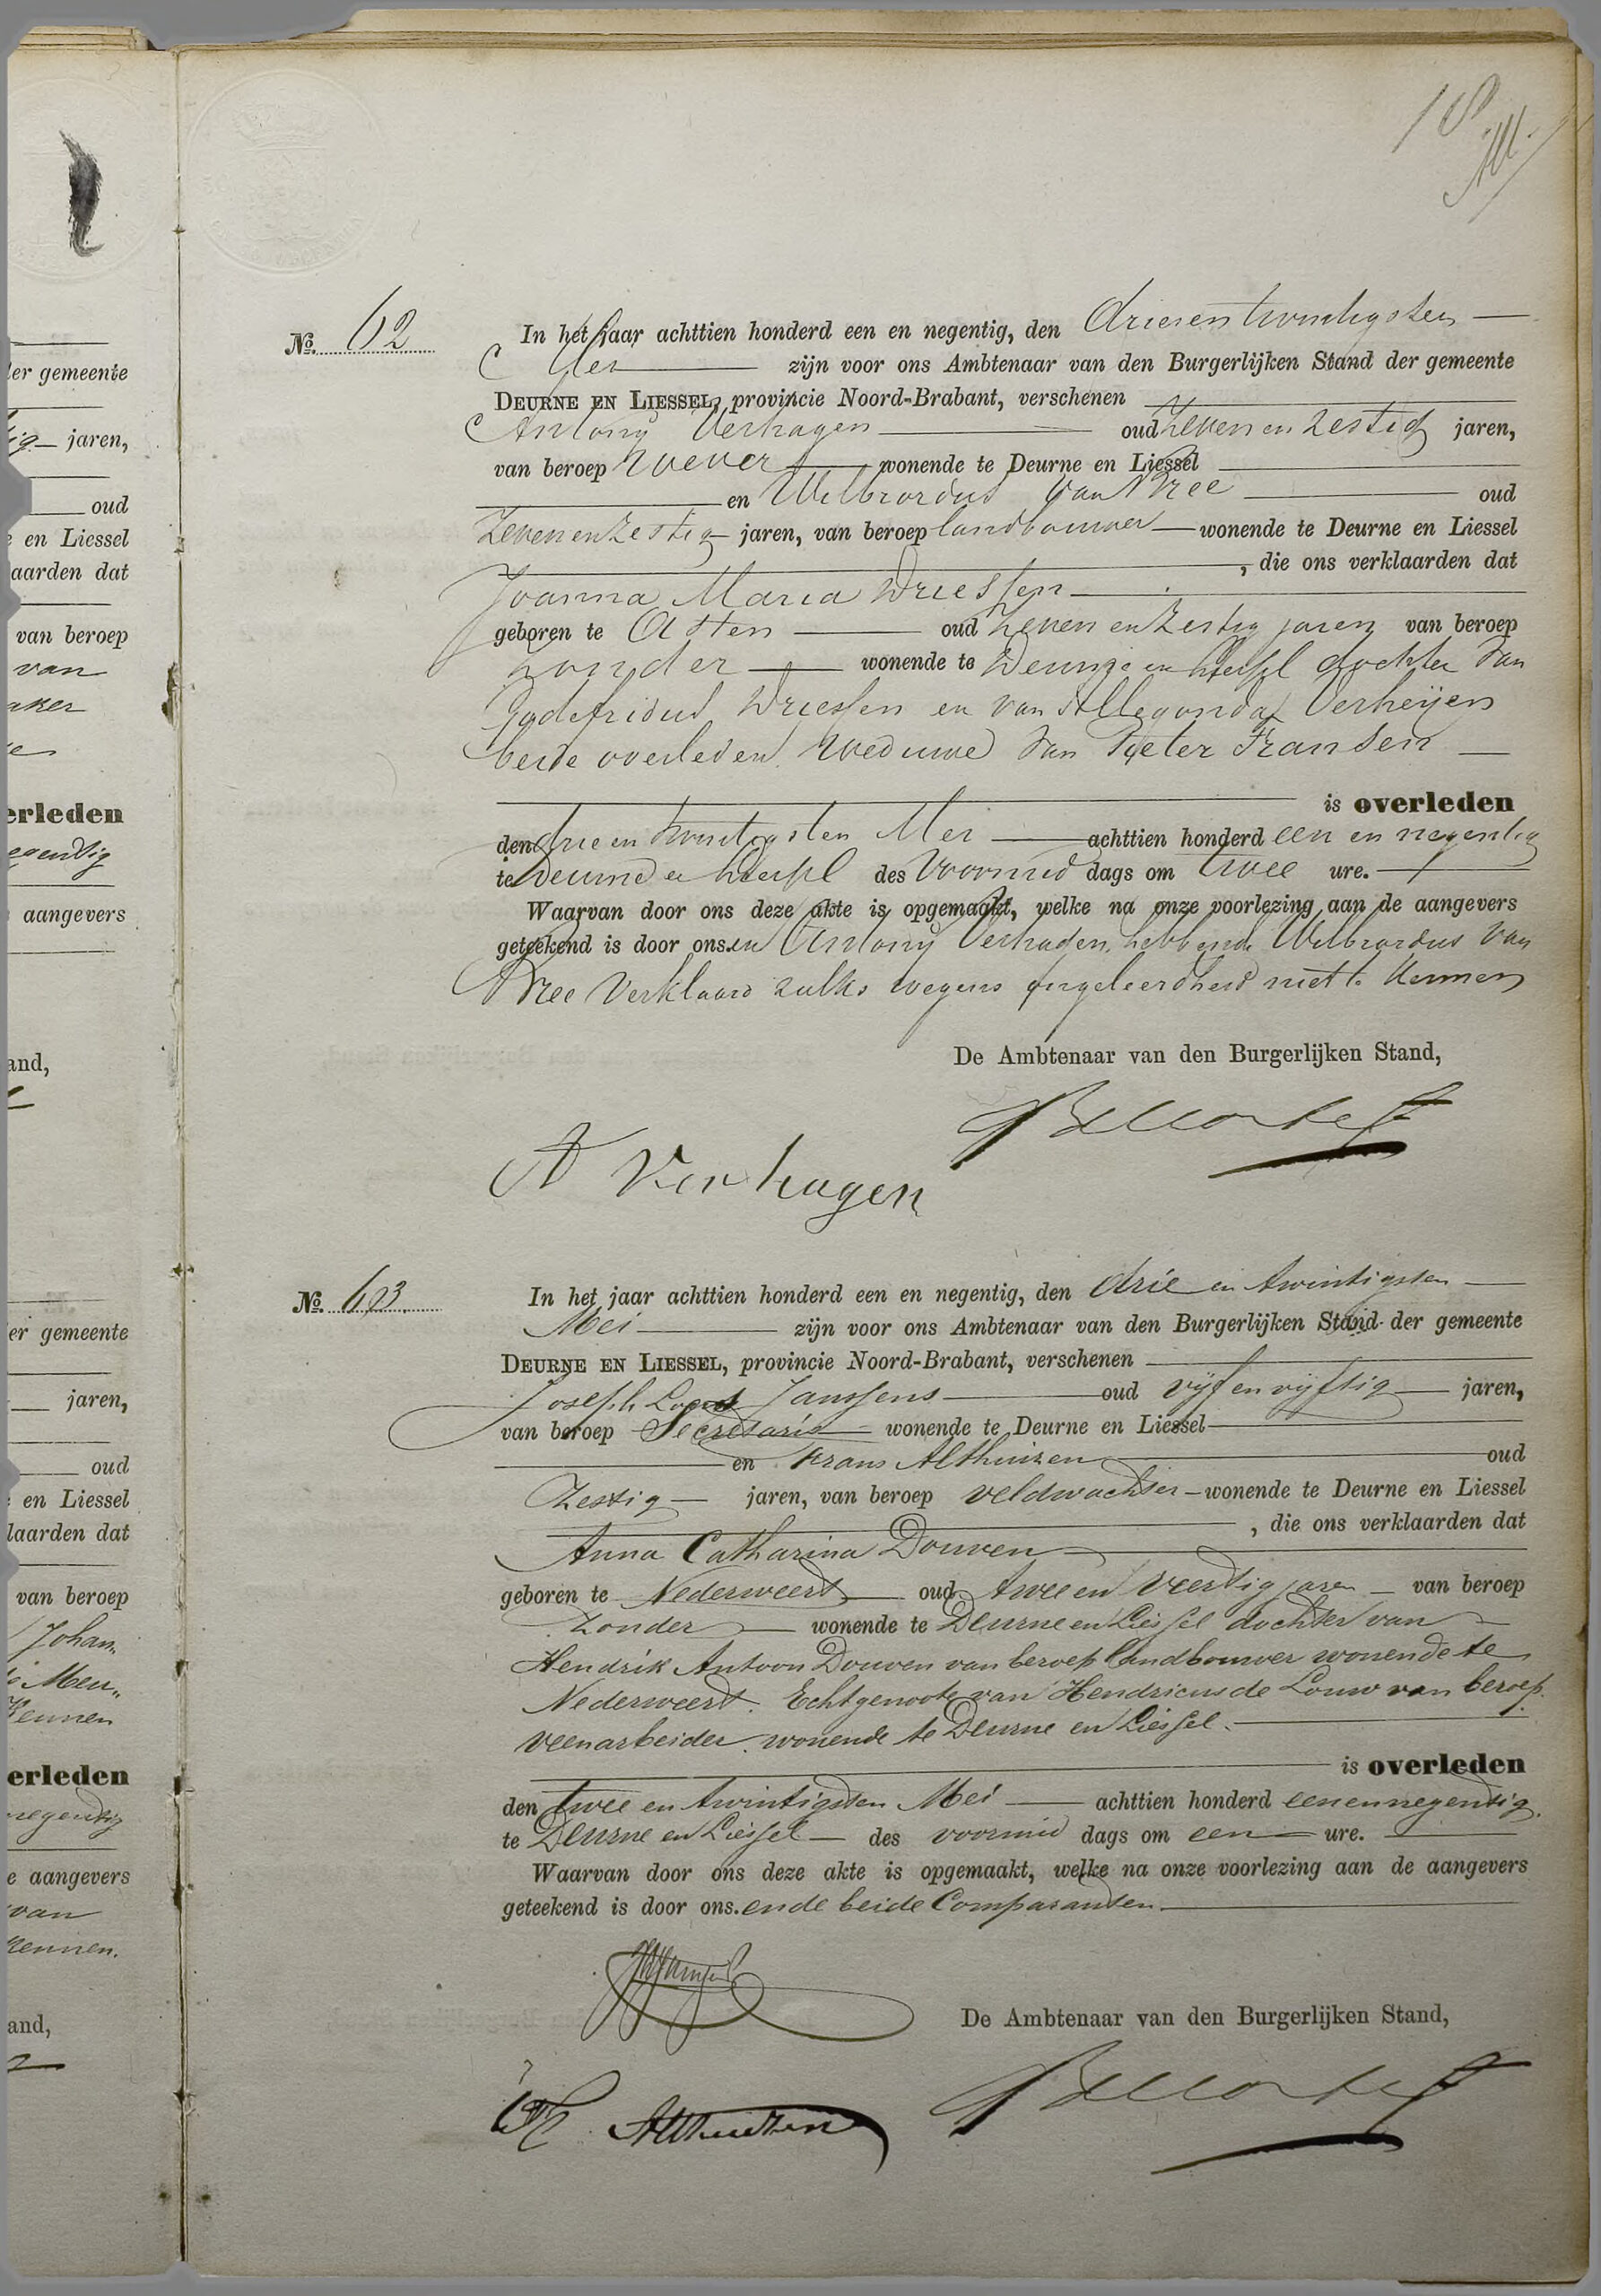 18
No. 62
In het jaar achttien honderd een en negentig, den drieentwintigsten
Mei zijn voor ons Ambtenaar van den Burgerlijken Stand der gemeente
DEURNE EN LIESSEL, provincie Noord-Brabant, verschenen
Antony Verhagen oud zeven en zestig jaren,
van beroep wever wonende te Deurne en Liessel
en Wilbrordus van Bree oud
zeven en zestig jaren, van beroep landbouwer wonende te Deurne en Liessel
, die ons verklaarden dat
Joanna Maria Driessen
geboren te Asten oud zeven en zestig jaren van beroep
zonder wonende te Deurne en Liessel dochter van
Godefridus Driessen en van Allegonda Verheijen
beide overleden weduwe van Peter Fransen
is overleden
den drie en twintigsten Mei achttien honderd een en negentig
te Deurne en Liessel des voormid dags om twee ure.
Waarvan door ons deze akte is opgemaakt, welke na onze voorlezing aan de aangevers
geteekend is door ons. en Antony Verhagen, hebbende Wilbrordus van
Bree verklaard zulks wegens ongeleerdheid niet te kunnen
De Ambtenaar van den Burgerlijken Stand,
A Verhagen
No. 63.
In het jaar achttien honderd een en negentig, den drie en twintigsten
Mei zijn voor ons Ambtenaar van den Burgerlijken Stand der gemeente
DEURNE EN LIESSEL, provincie Noord-Brabant, verschenen
Joseph Janssens oud vijf en vijftig jaren,
van beroep Secretaris wonende te Deurne en Liessel
en Frans Althuizen oud
Zestig jaren, van beroep veldwachter wonende te Deurne en Liessel
, die ons verklaarden dat
Anna Catharina Douven
geboren te Nederweert oud twee en veertig jaren van beroep
zonder wonende te Deurne en Liessel dochter van
Hendrik Antoon Douven van beroep landbouwer wonende te
Nederweert. Echtgenoote van Hendricus de Louw van beroep
veenarbeider wonende te Deurne en Liessel.
is overleden
den twee en twintigsten Mei achttien honderd een en negentig.
te Deurne en Liessel des voormid dags om een ure.
Waarvan door ons deze akte is opgemaakt, welke na onze voorlezing aan de aangevers
geteekend is door ons. en de beide Comparanten.
De Ambtenaar van den Burgerlijken Stand,
Althuizen
er gemeente
jaren,
oud
en Liessel
aarden dat
van beroep
van
erleden
egentig
aangevers
and,
er gemeente
jaren,
oud
en Liessel
laarden dat
van beroep
Johan.
Kennen
erleden
negentig
e aangevers
van
kennen.
and,